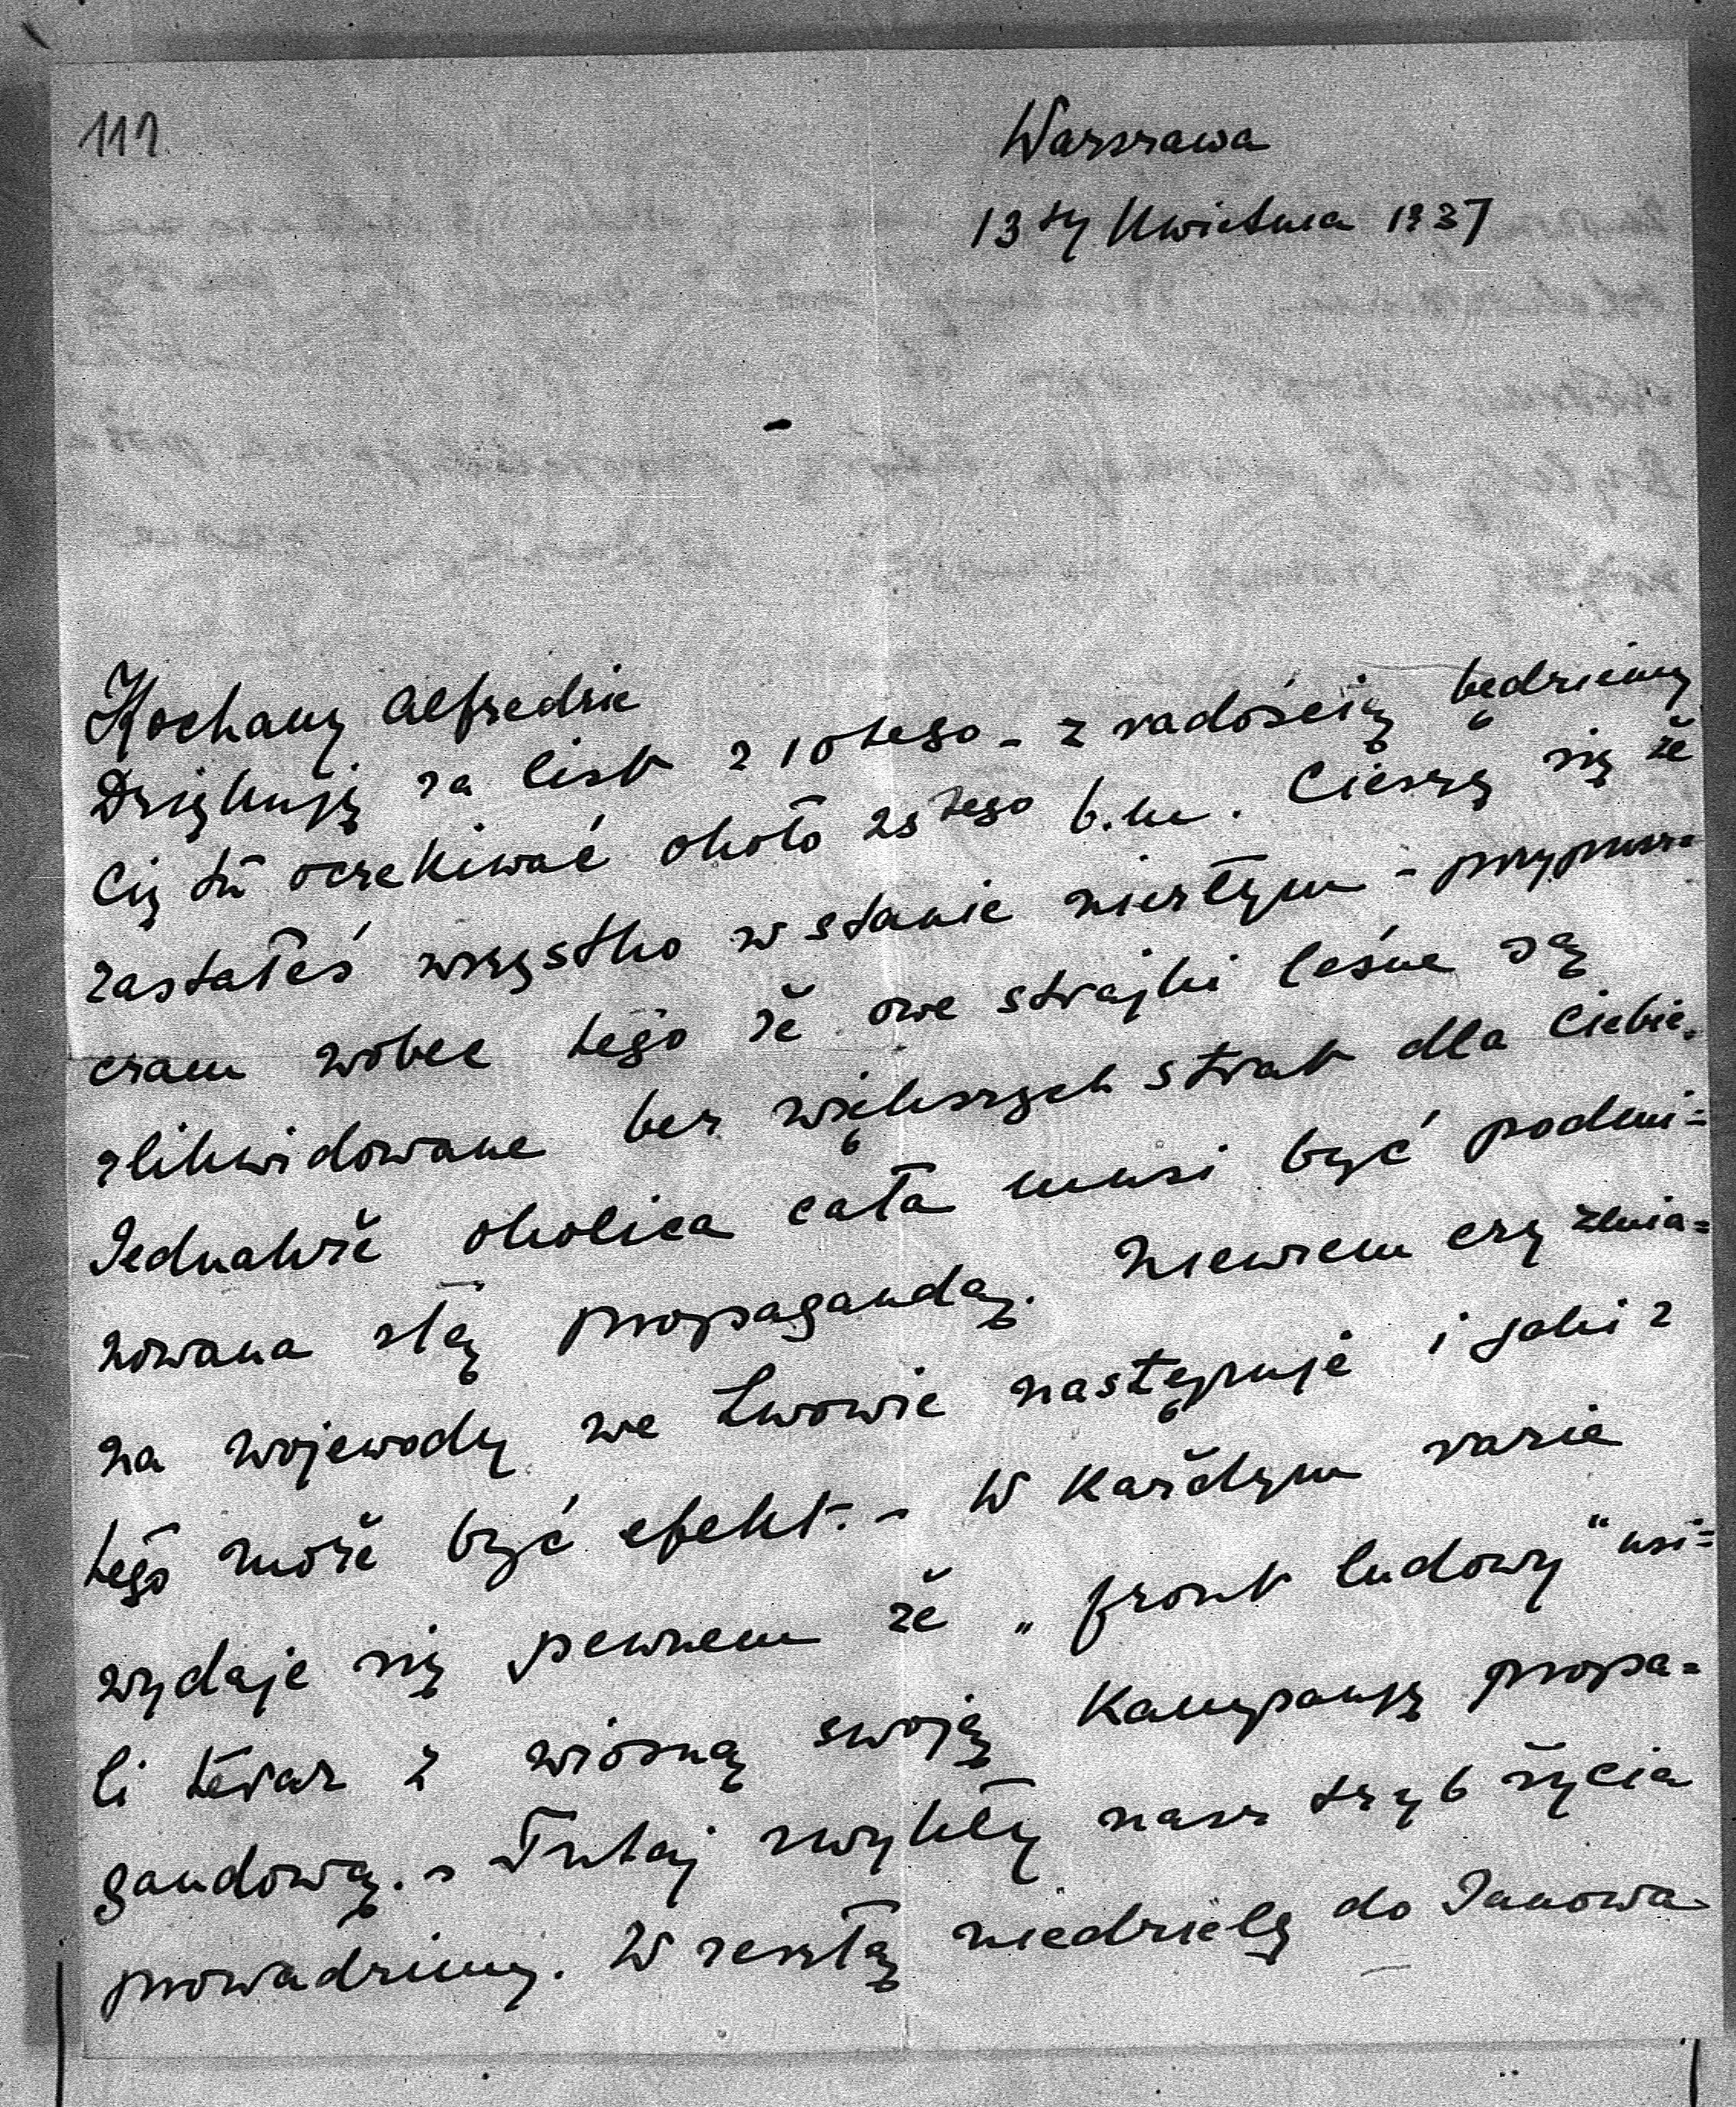 117
Warszawa
13ty Kwietnia 1937
Kochany Alfredzie
Dziękuję za list z 10tego - z radością będziemy
Cię tu oczekiwać około 25tego b.m. Cieszę się że
zastałeś wszystko w stanie niezłym - przypusz=
czam wobec tego że owe strajki leśne są
zlikwidowane bez większych strat dla Ciebie.
Jednakże okolica cała musi być podmi=
nowana złą propagandą. Niewiem czy zmia=
na wojewody we Lwowie następuje i jaki z
tego może być efekt. - W każdym razie
wydaje się pewnem że „front ludowy" usi=
li teraz z wiosną swoją kampanję propa=
gandową. - Tutaj zwykły nasz tryb życia
prowadzimy. W zeszłą niedzielę do Janowa